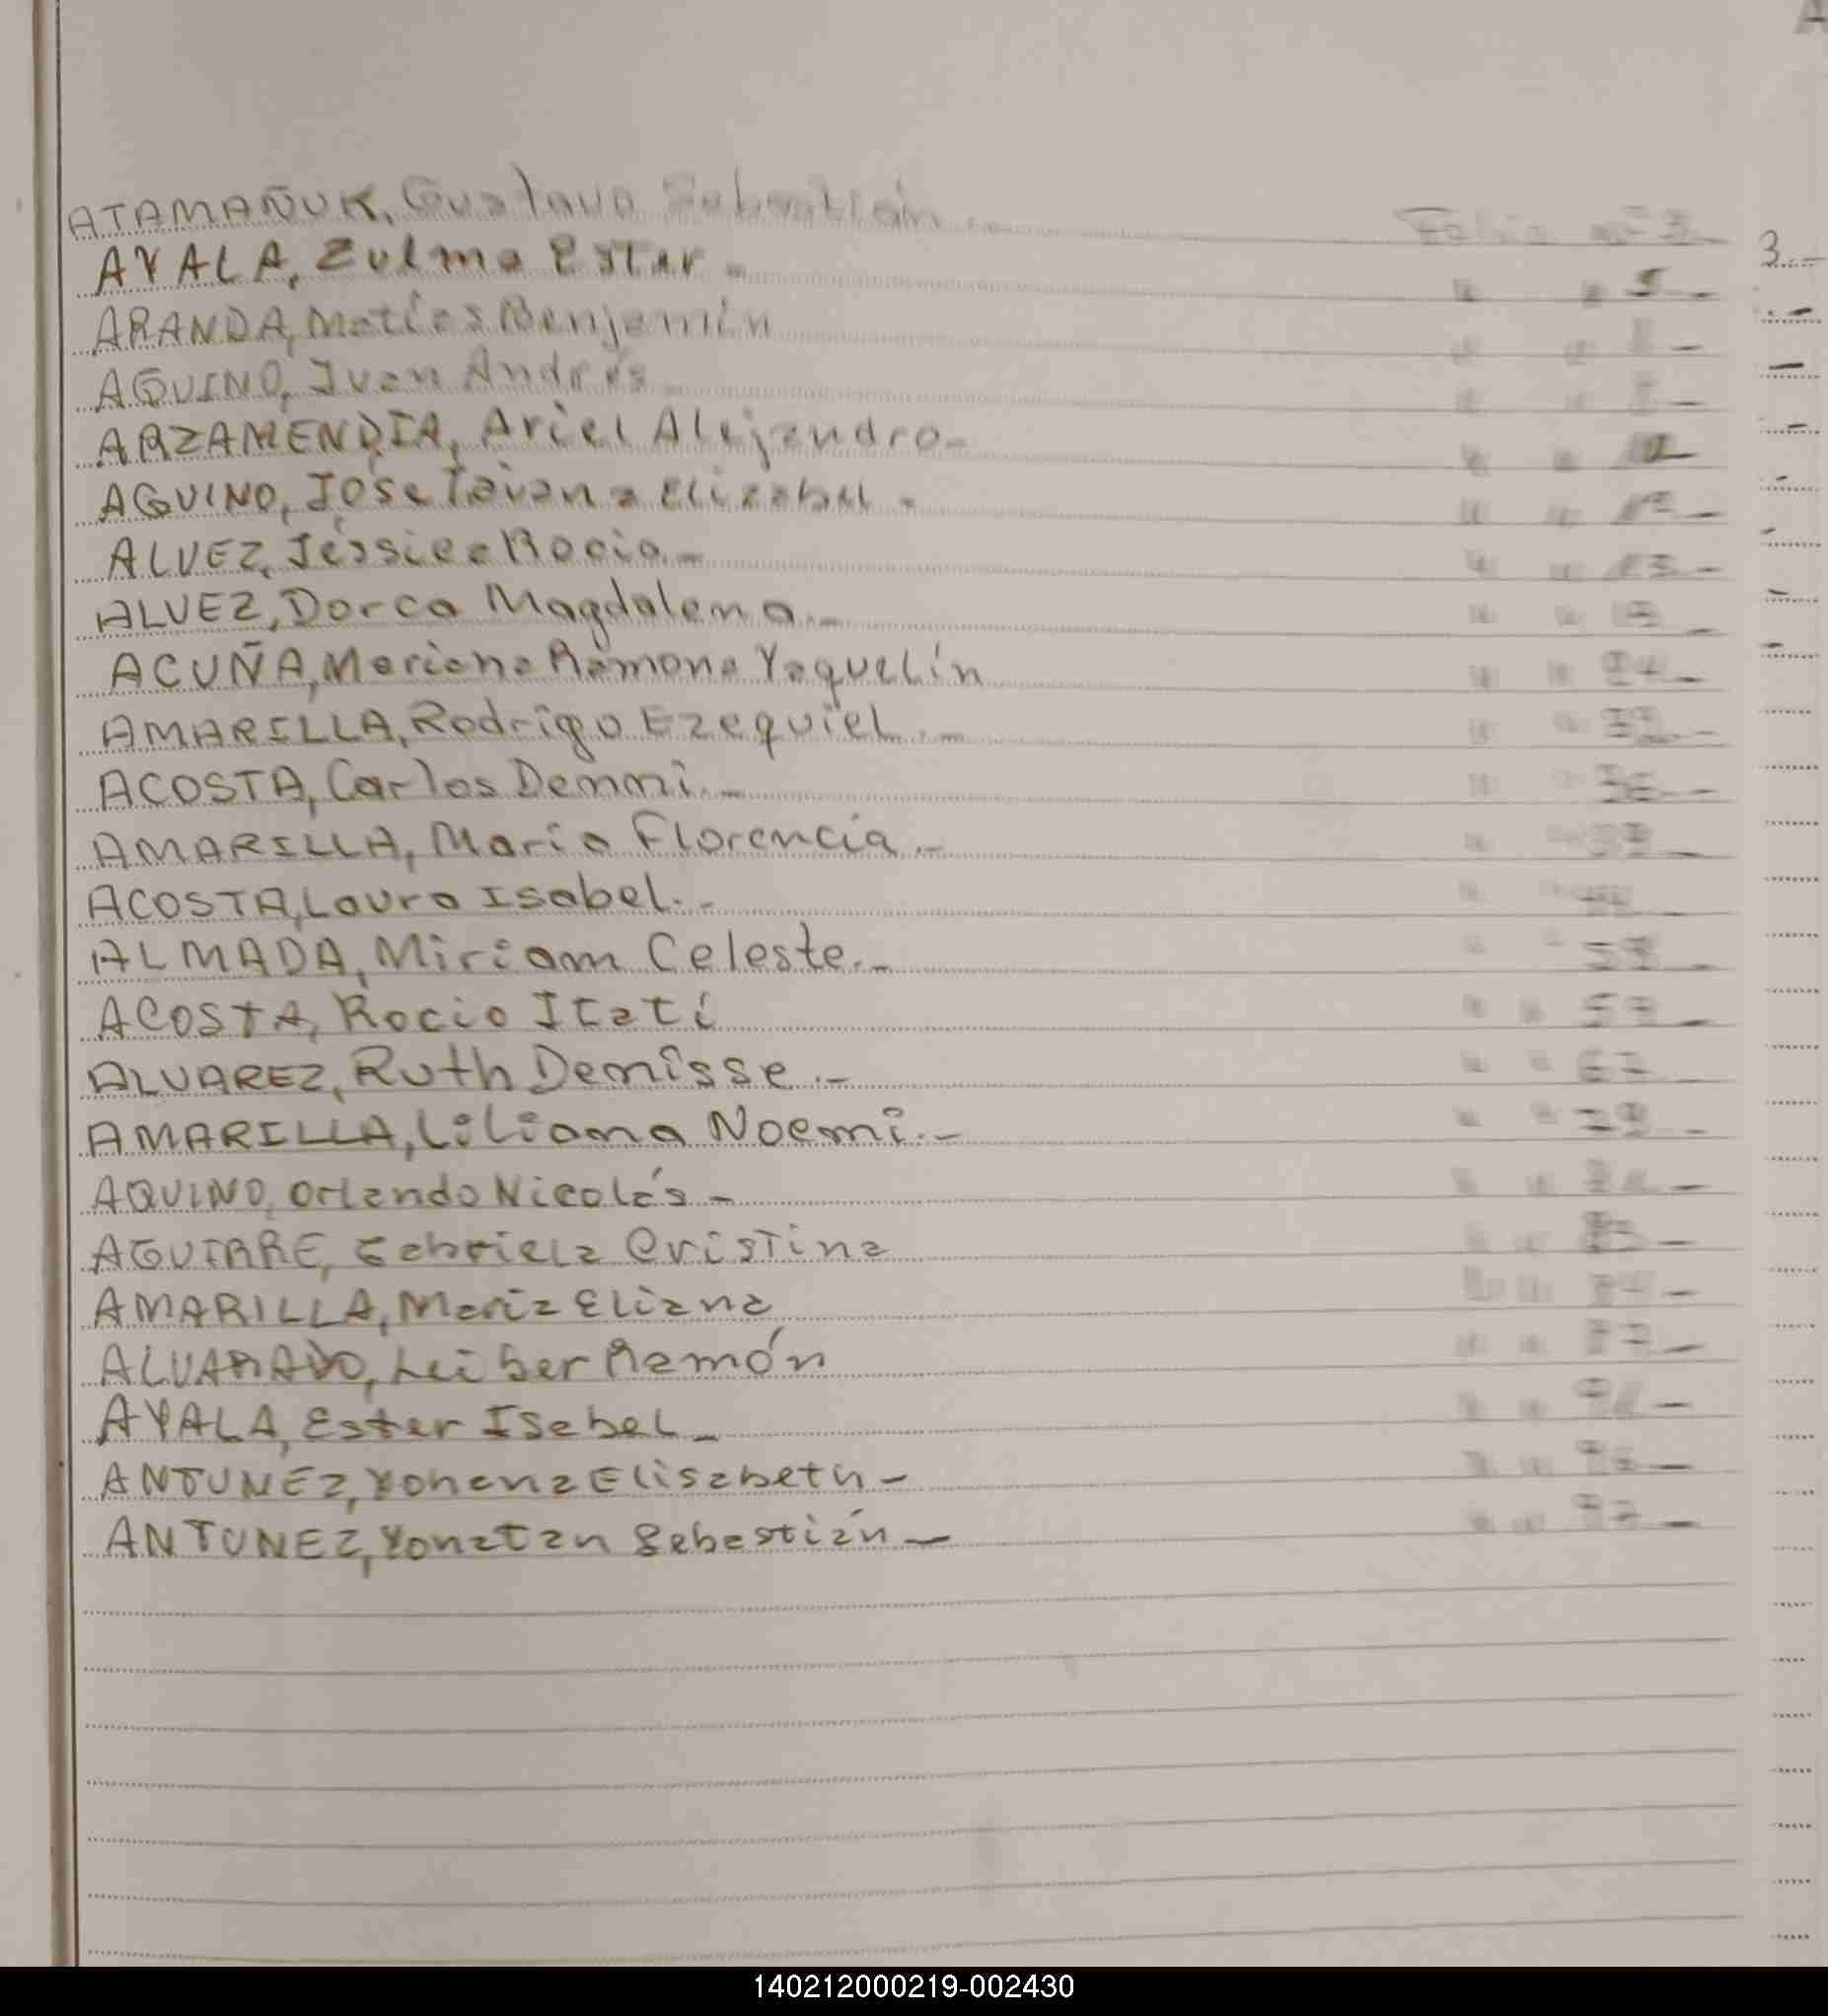 A
ATAMAÑUK, Gustavo Sebastián.-- Folio nº 3.- 3.-
AYALA, Zulma Ester.- " " 5.-
ARANDA, Matías Benjamín " " -
AQUINO, Ivan Andrés " " -
ARZAMENDIA, Ariel Alejandro.- " " 12
AQUINO, José " " 12.-
ALVEZ, Jéssica Rocio.- " " 13.-
ALVEZ, Dorca Magdalena.- " "
ACUÑA, Mariana Ramona Yaquelín " " 24.-
AMARILLA, Rodrigo Ezequiel.- " "
ACOSTA, Carlos Denni.- " " 36.-
AMARILLA, María Florencia.- " "
ACOSTA, Laura Isabel.- " "
ALMADA, Miriam Celeste.- " "
ACOSTA, Rocio Itatí " "
ALVAREZ, Ruth Denisse.- " "
AMARILLA, Liliana Noemi.- " "
AQUINO, Orlando Nicolás - " "
AGUIRRE, Gabriela Cristina " "
AMARILLA, María Eliana " "
ALVARADO, Leiber Ramón " "
AYALA, Ester Isabel - " "
ANTUNEZ, Yohana Elisabeth - " "
ANTUNEZ, Yonatan Sebastián - " "
140212000219-002430